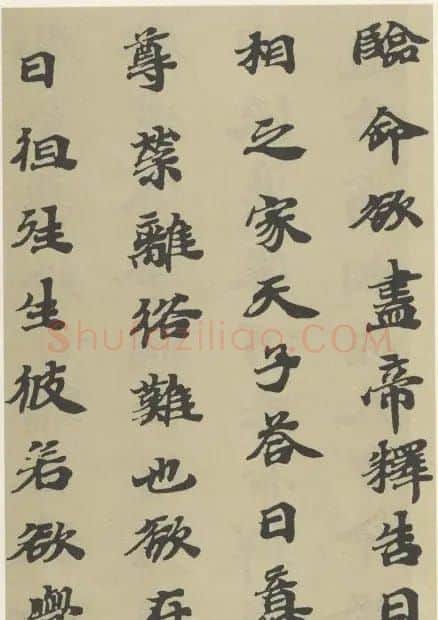 臨命欲盡帝釋告曰
相之家天子答曰
尊榮離俗難也欲在
曰但往生彼若欲學
Shufaziliao.COM